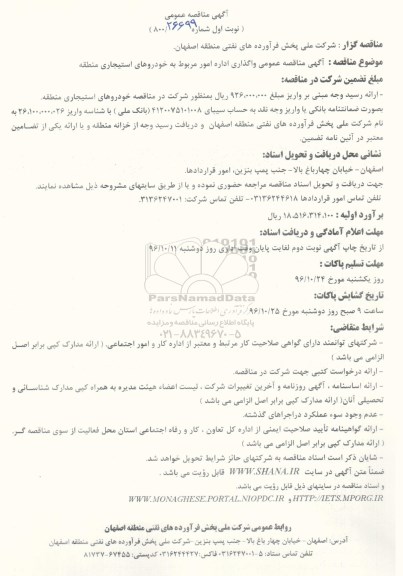 آگهی مناقصه عمومی
( نوبت اول شماره ۲۶۶۹۹/ ۸۰۰ )
مناقصه گزار : شرکت ملی پخش فرآورده های نفتی منطقه اصفهان.
موضوع مناقصه : آگهی مناقصه عمومی واگذاری اداره امور مربوط به خودروهای استیجاری منطقه
مبلغ تضمین شرکت در مناقصه:
- ارائه رسید وجه مبنی بر واریز مبلغ ۹۲۶.۰۰۰.۰۰۰ ریال بمنظور شرکت در مناقصه خودروهای استیجاری منطقه.
بصورت ضمانتنامه بانکی یا واریز وجه نقد به حساب سیبای ۴۱۲۰۰۷۵۱۰۱۰۰۸ (بانک ملی ) با شناسه واریز ۲۶.۱۰۰.۰۰۰.۰۲۶ به
نام شرکت ملی پخش فرآورده های نفتی منطقه اصفهان و دریافت رسید وجه از خزانه منطقه و یا ارائه یکی از تضامین
معتبر در آئین نامه تضمین.
نشانی محل دریافت و تحویل اسناد:
اصفهان - خیابان چهارباغ بالا- جنب پمپ بنزین، امور قراردادها.
جهت دریافت و تحویل اسناد مناقصه مراجعه حضوری نموده و یا از طریق سایتهای مشروحه ذیل مشاهده نمایند.
تلفن تماس امور قراردادها ۰۳۱۳۶۲۴۴۶۱۸- تلفن تماس شرکت: ۳۱۳۶۲۴۷۰۰۱.
برآورد اولیه : ۱۸.۵۱۶.۳۱۴.۱۰۰ ریال
مهلت اعلام آمادگی و دریافت اسناد:
از تاریخ چاپ آگهی نوبت دوم لغایت پایان وقت اداری روز دوشنبه ۹۶/۱۰/۱۱
مهلت تسلیم پاکات :
روز یکشنبه مورخ ۹۶/۱۰/۲۴
تاریخ گشایش پاکات:
ساعت ۹ صبح روز دوشنبه مورخ ۹۶/۱۰/۲۵
شرایط متقاضی:
- شرکتهای توانمند دارای گواهی صلاحیت کار مرتبط و معتبر از اداره کار و امور اجتماعی. ( ارائه مدارک کپی برابر اصل
الزامی می باشد )
- ارائه درخواست کتبی جهت شرکت در مناقصه.
- ارائه اساسنامه ، آگهی روزنامه و آخرین تغییرات شرکت ، لیست اعضاء هیئت مدیره به همراه کپی مدارک شناسائی و
تحصیلی آنان( ارائه مدارک کپی برابر اصل الزامی می باشد )
- عدم وجود سوء عملکرد دراجراهای گذشته.
- ارائه گواهینامه تأیید صلاحیت ایمنی از اداره کل تعاون ، کار و رفاه اجتماعی استان محل فعالیت از سوی مناقصه گر.
( ارائه مدارک کپی برابر اصل الزامی می باشد )
- شایان ذکر است اسناد مناقصه به شرکتهای حائز شرایط تحویل خواهد شد.
ضمناً متن آگهی در سایت WWW.SHANA.IR قابل رؤیت می باشد .
و اسناد مناقصه در سایتهای ذیل قابل رؤیت می باشد.
HTTP://IETS.MPORG.IR و WWW.MONAGHESE.PORTAL.NIOPDC.IR
روابط عمومی شرکت ملی پخش فرآورده های نفتی منطقه اصفهان
آدرس: اصفهان - خیابان چهار باغ بالا - جنب پمپ بنزین -شرکت ملی پخش فرآورده های نفتی منطقه اصفهان
تلفن تماس ستاد: ۵-۰۳۱۶۲۴۷۰۰۱ فاکس:۰۳۱۶۲۴۴۴۲۷ کدپستی: ۶۷۴۵۵-۸۱۷۳۷
ParsNamadData
پایگاه اطلاع رسانی مناقصه و مزایده
۰۲۱-۸۸۳۴۹۶۷۰-۵